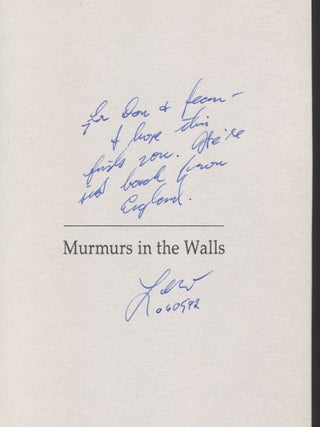 For Don & Jean –
I hope this
finds you. We're
just back from
England.
Murmurs in the Walls
060592